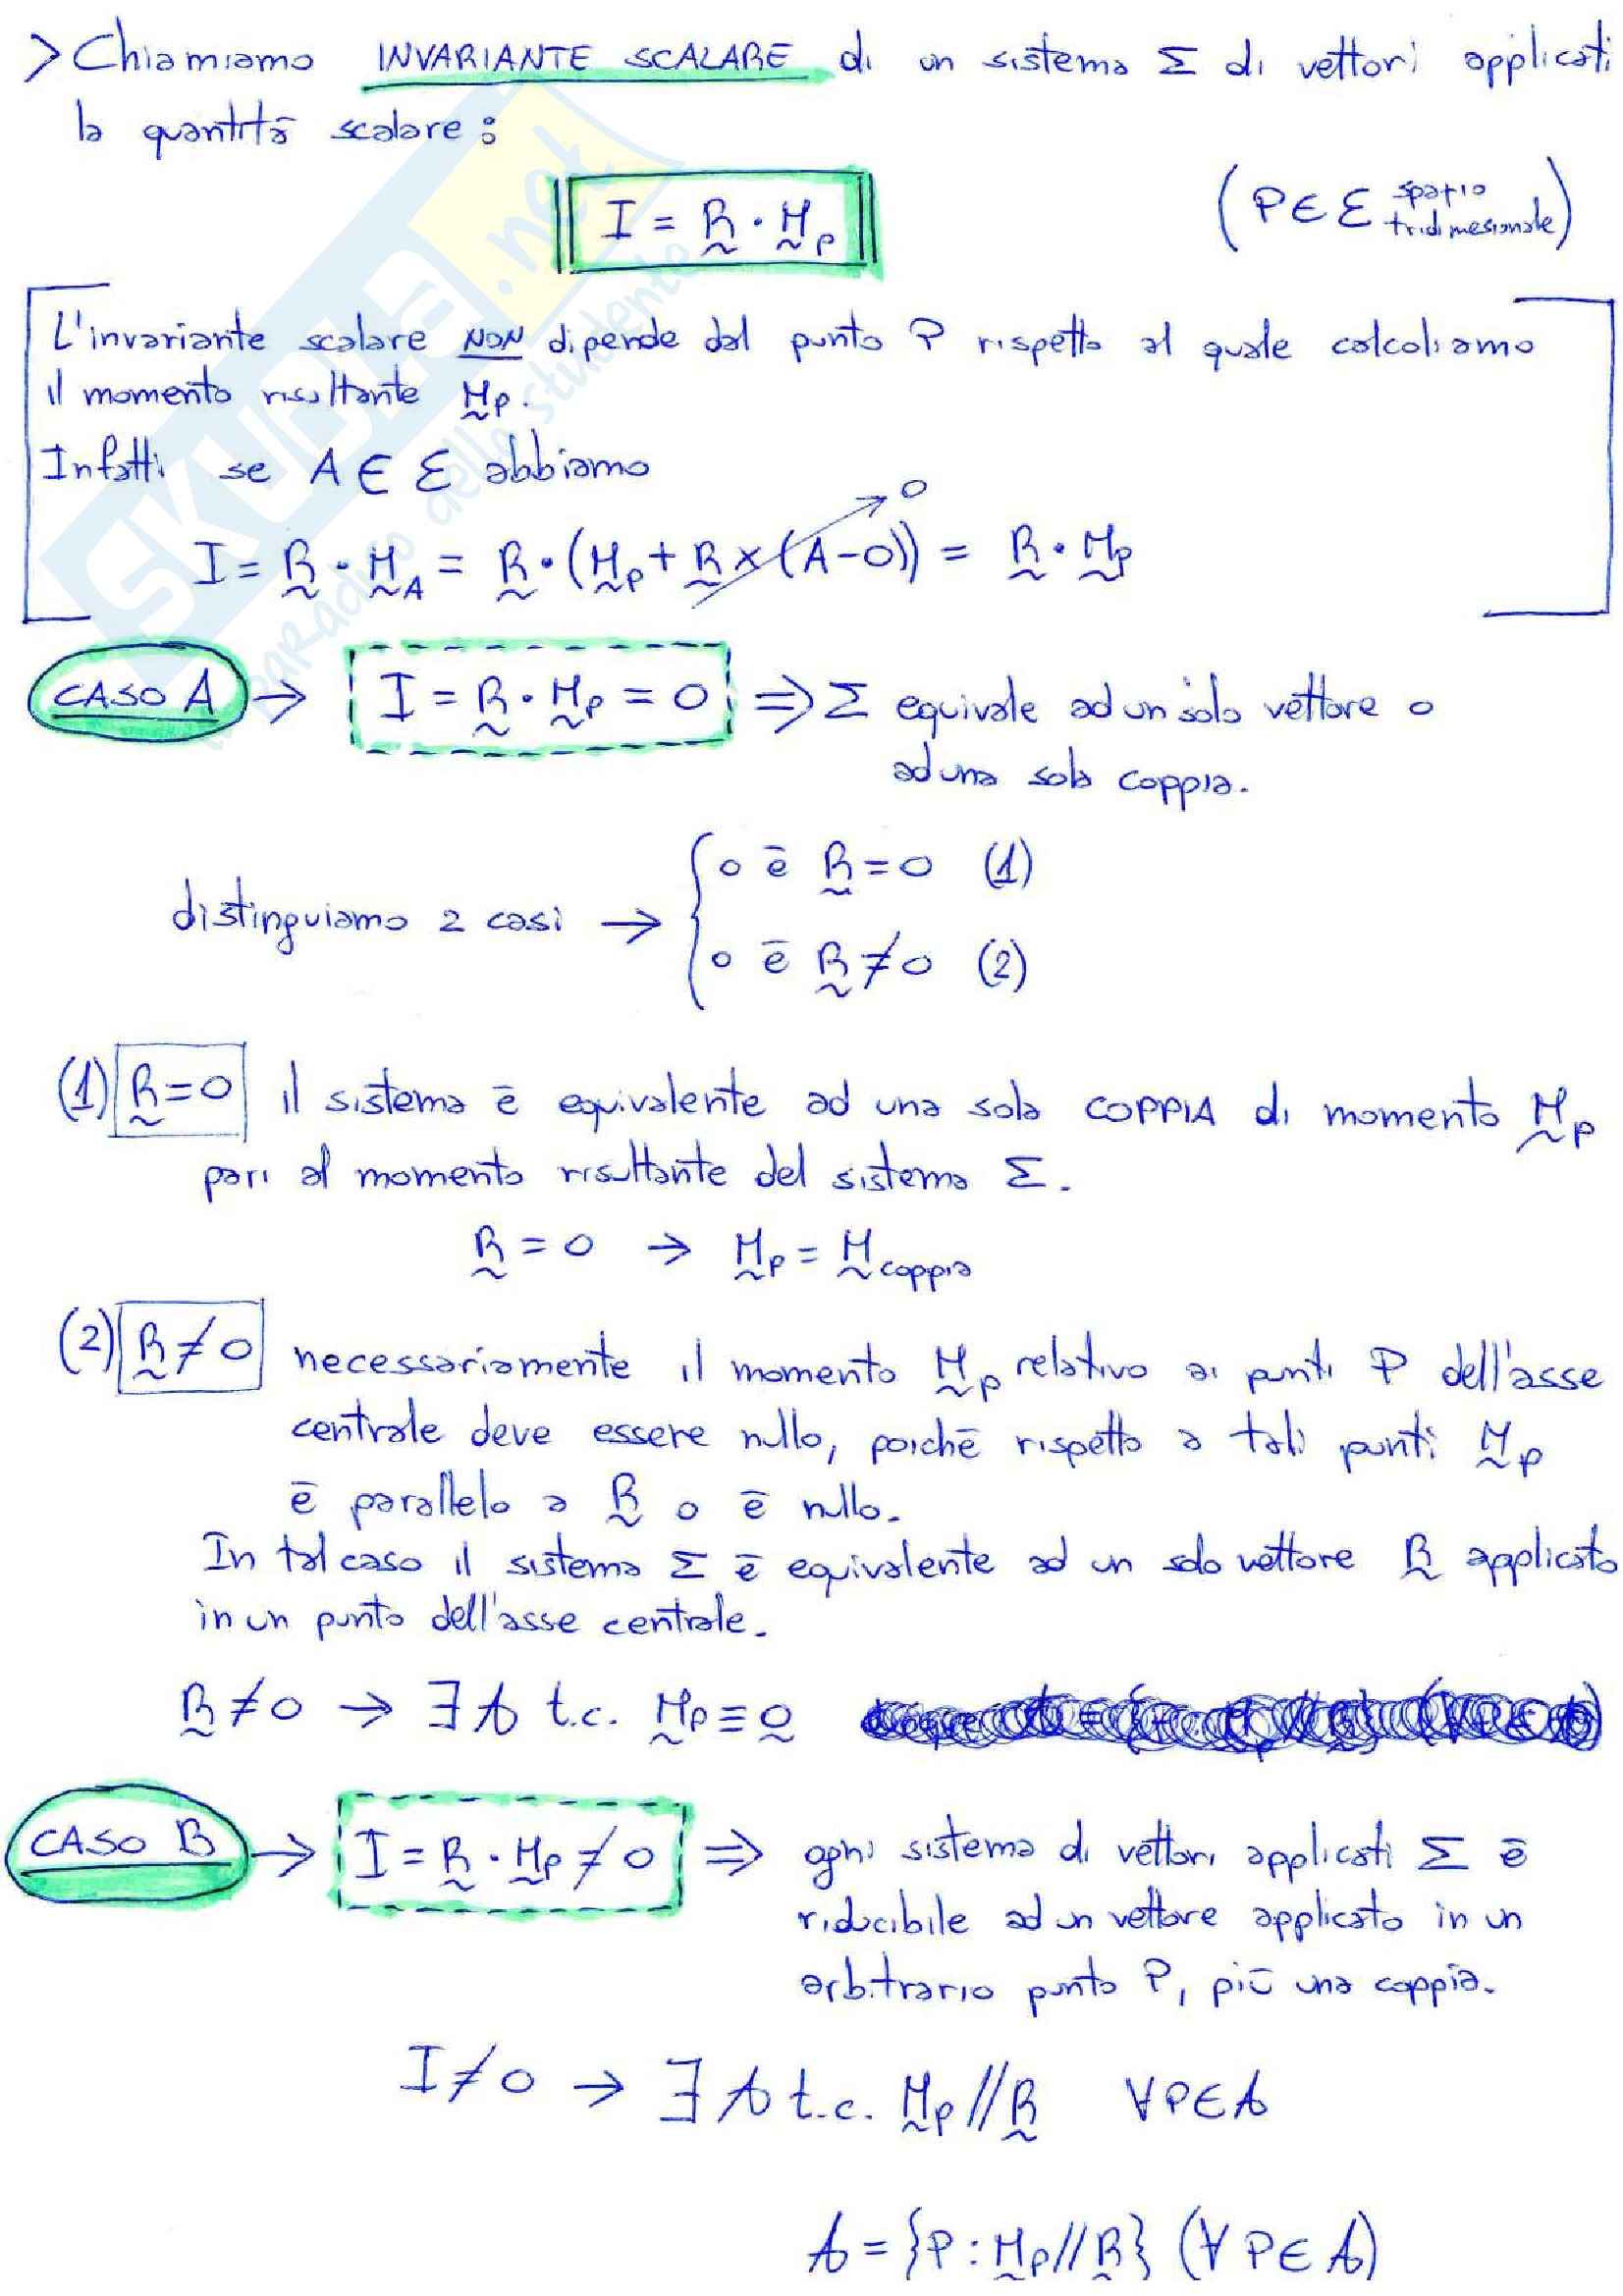 > Chiamiamo INVARIANTE SCALARE di un sistema Σ di vettori applicati
la quantità scalare:
I = R · M_P
(P ∈ Ɛ spazio tridimesionale)
L'invariante scalare NON dipende dal punto P rispetto al quale calcoliamo
il momento risultante M_P.
Infatti se A ∈ Ɛ abbiamo
I = R · M_A = R · (M_P + R × (A-O)) = R · M_P
0
CASO A → I = R · M_P = 0 ⇒ Σ equivale ad un solo vettore o
ad una sola coppia.
distinguiamo 2 casi → { o è R = 0 (1)
o è R ≠ 0 (2)
(1) R = 0 il sistema è equivalente ad una sola COPPIA di momento M_P
pari al momento risultante del sistema Σ.
R = 0 → M_P = M_coppia
(2) R ≠ 0 necessariamente il momento M_P relativo ai punti P dell'asse
centrale deve essere nullo, poiché rispetto a tali punti M_P
è parallelo a R o è nullo.
In tal caso il sistema Σ è equivalente ad un solo vettore R applicato
in un punto dell'asse centrale.
R ≠ 0 → ∃ A t.c. M_P ≡ 0
CASO B → I = R · M_P ≠ 0 ⇒ ogni sistema di vettori applicati Σ è
riducibile ad un vettore applicato in un
arbitrario punto P, più una coppia.
I ≠ 0 → ∃ A t.c. M_P // R ∀ P ∈ A
A = {P : M_P // R} (∀ P ∈ A)
SKUOLA.net
il paradiso dello studente